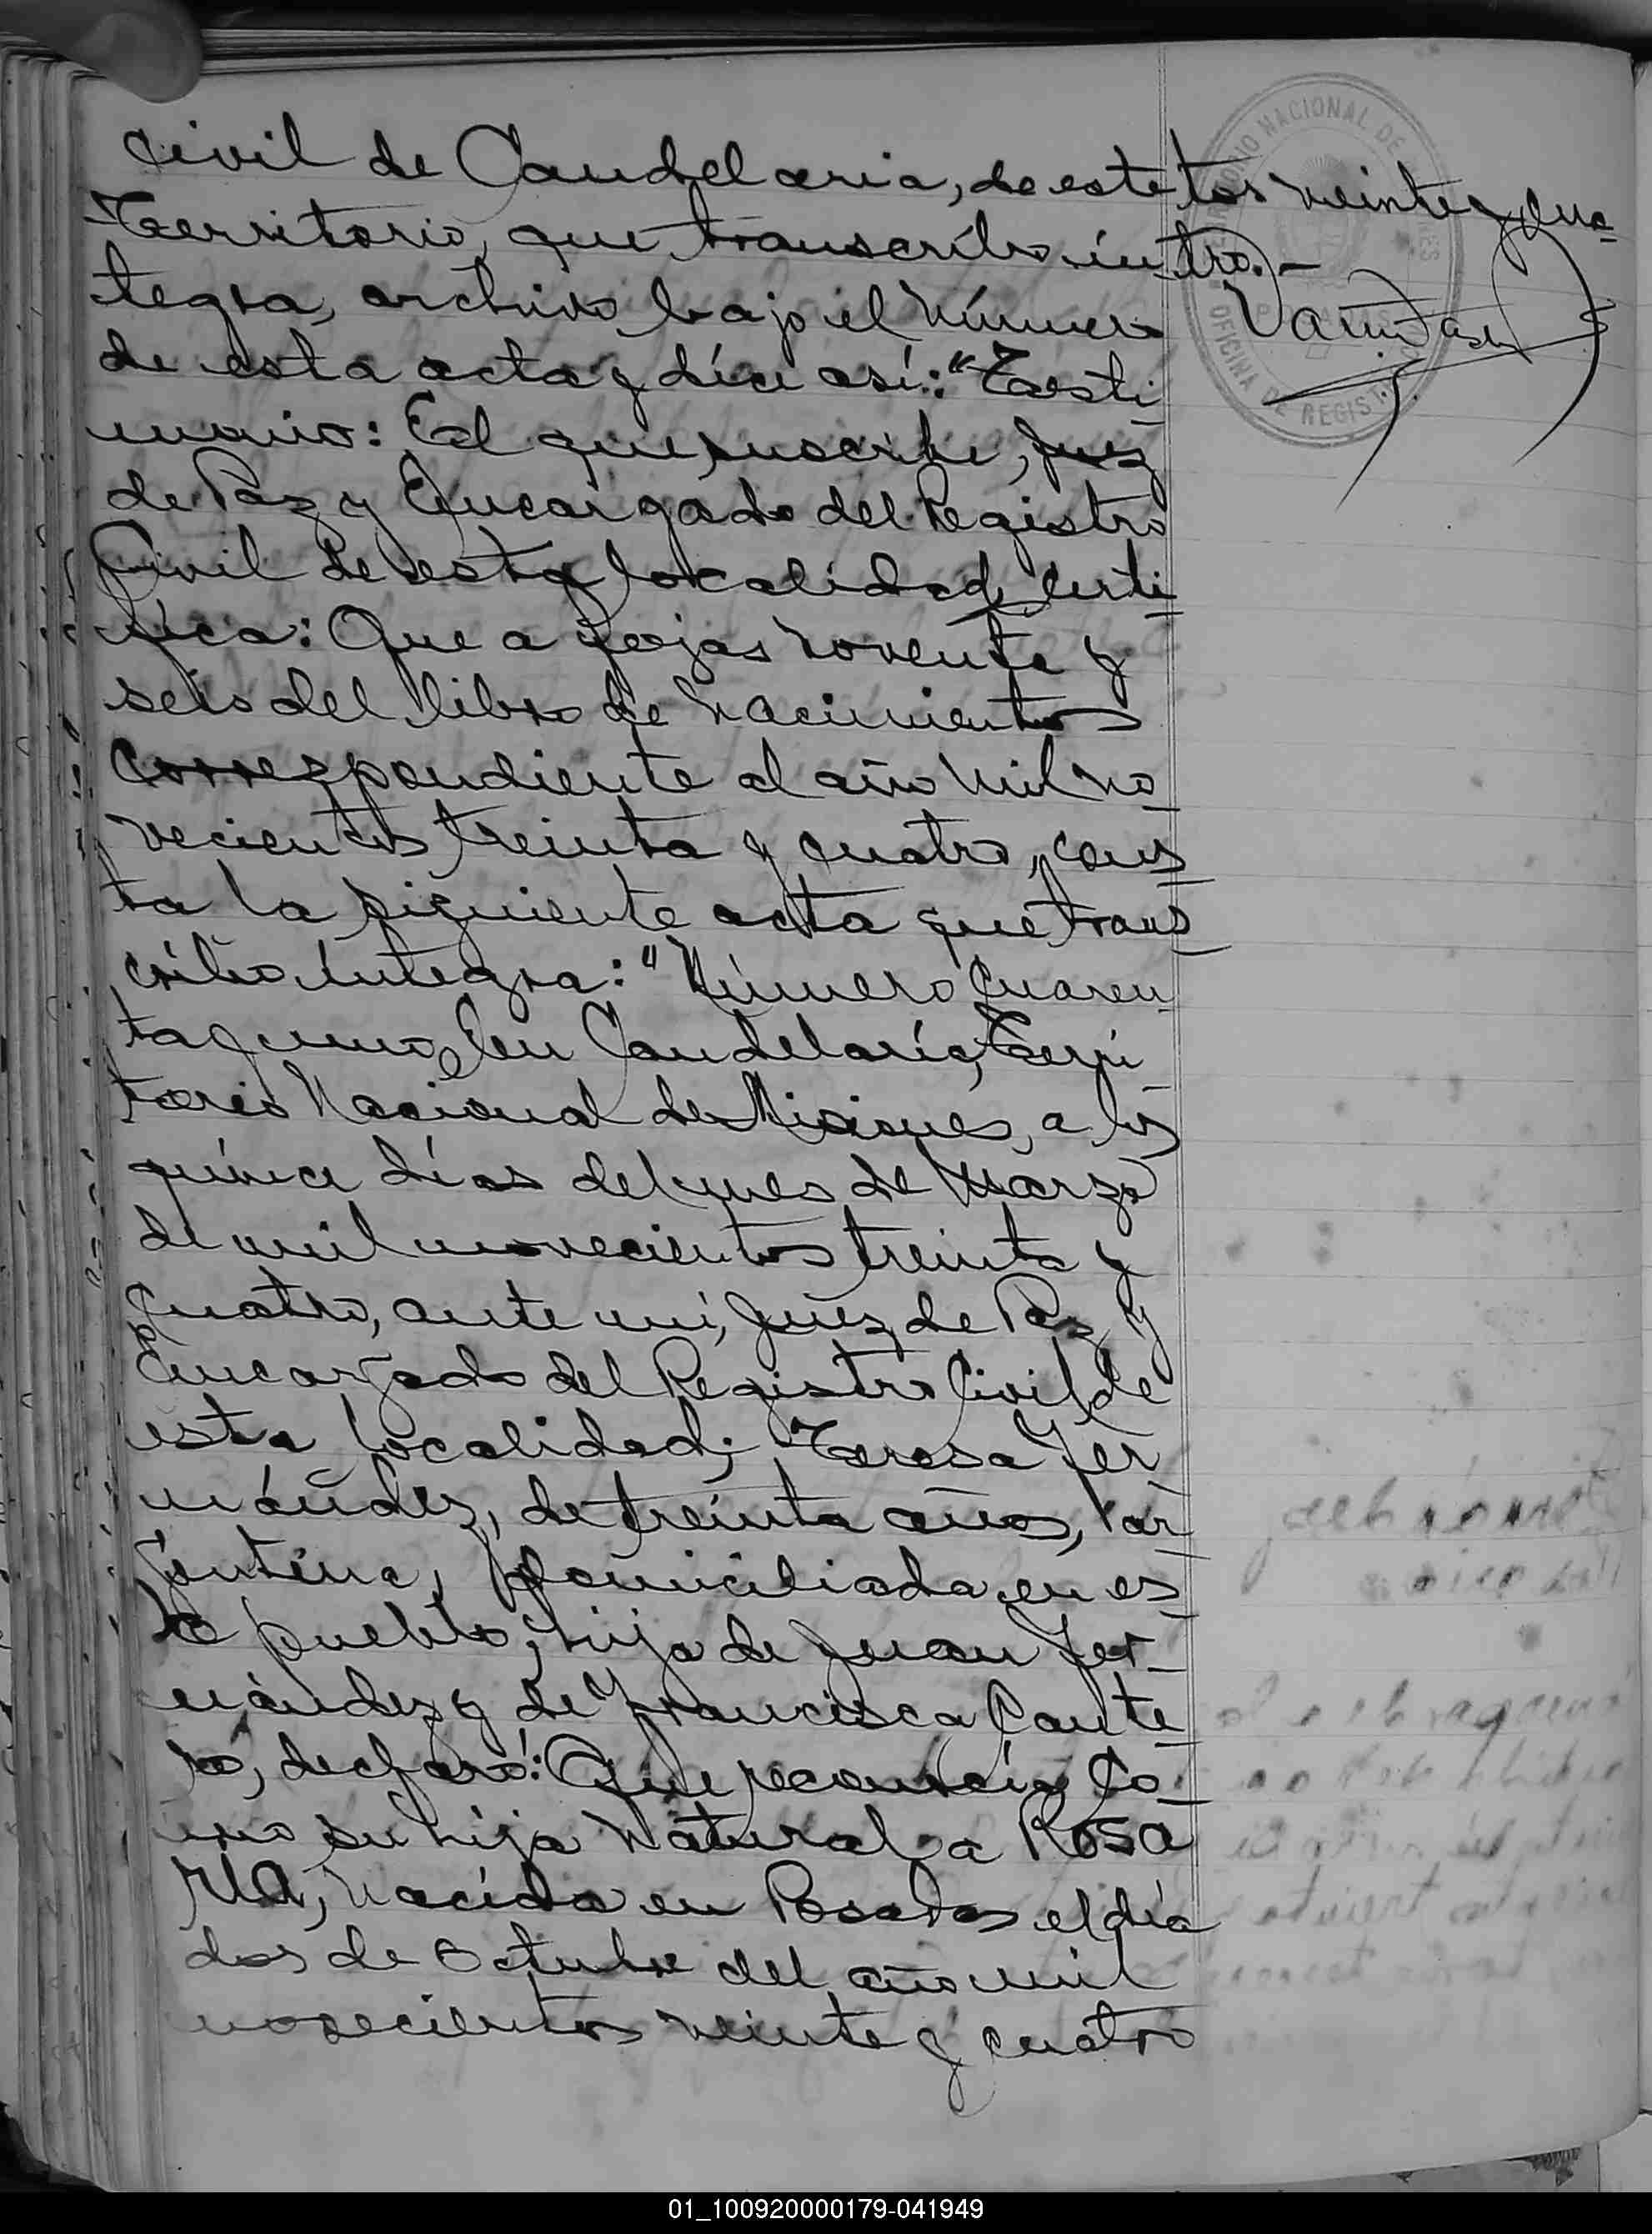 civil de Candelaria, de este
Territorio, que transcribo ín-
tegra, archivo bajo el número
de esta acta y díce así: "Testi-
monio: El que suscribe, Juez
de Paz y Encargado del Registro
Civil de esta localidad, Certi-
fica: Que a fojas noventa y
seis del libro de nacimientos
correspondiente al año mil no-
vecientos treinta y cuatro, cons-
ta la siguiente acta que trans-
cribo íntegra: "Número cuaren-
ta y uno. En Candelaria, Terri-
torio Nacional de Misiones, a los
quince días del mes de Marzo
de mil novecientos treinta y
cuatro, ante mí, Juez de Paz y
Encargado del Registro Civil de
esta localidad; Teresa Fer-
nández, de treinta años, ar-
jentina, domiciliada en es-
te pueblo, hija de Juan Fer-
nández y de Francisca Cante-
ro, declaró: Que reconocía co-
mo su hija natural a ROSA
RIA, nacida en Posadas el día
dos de Octubre del año mil
novecientos veinte y cuatro
tos veinte y cua-
tro.-
REGISTRO NACIONAL DE
OFICINA DE REGISTRO
01_100920000179-041949